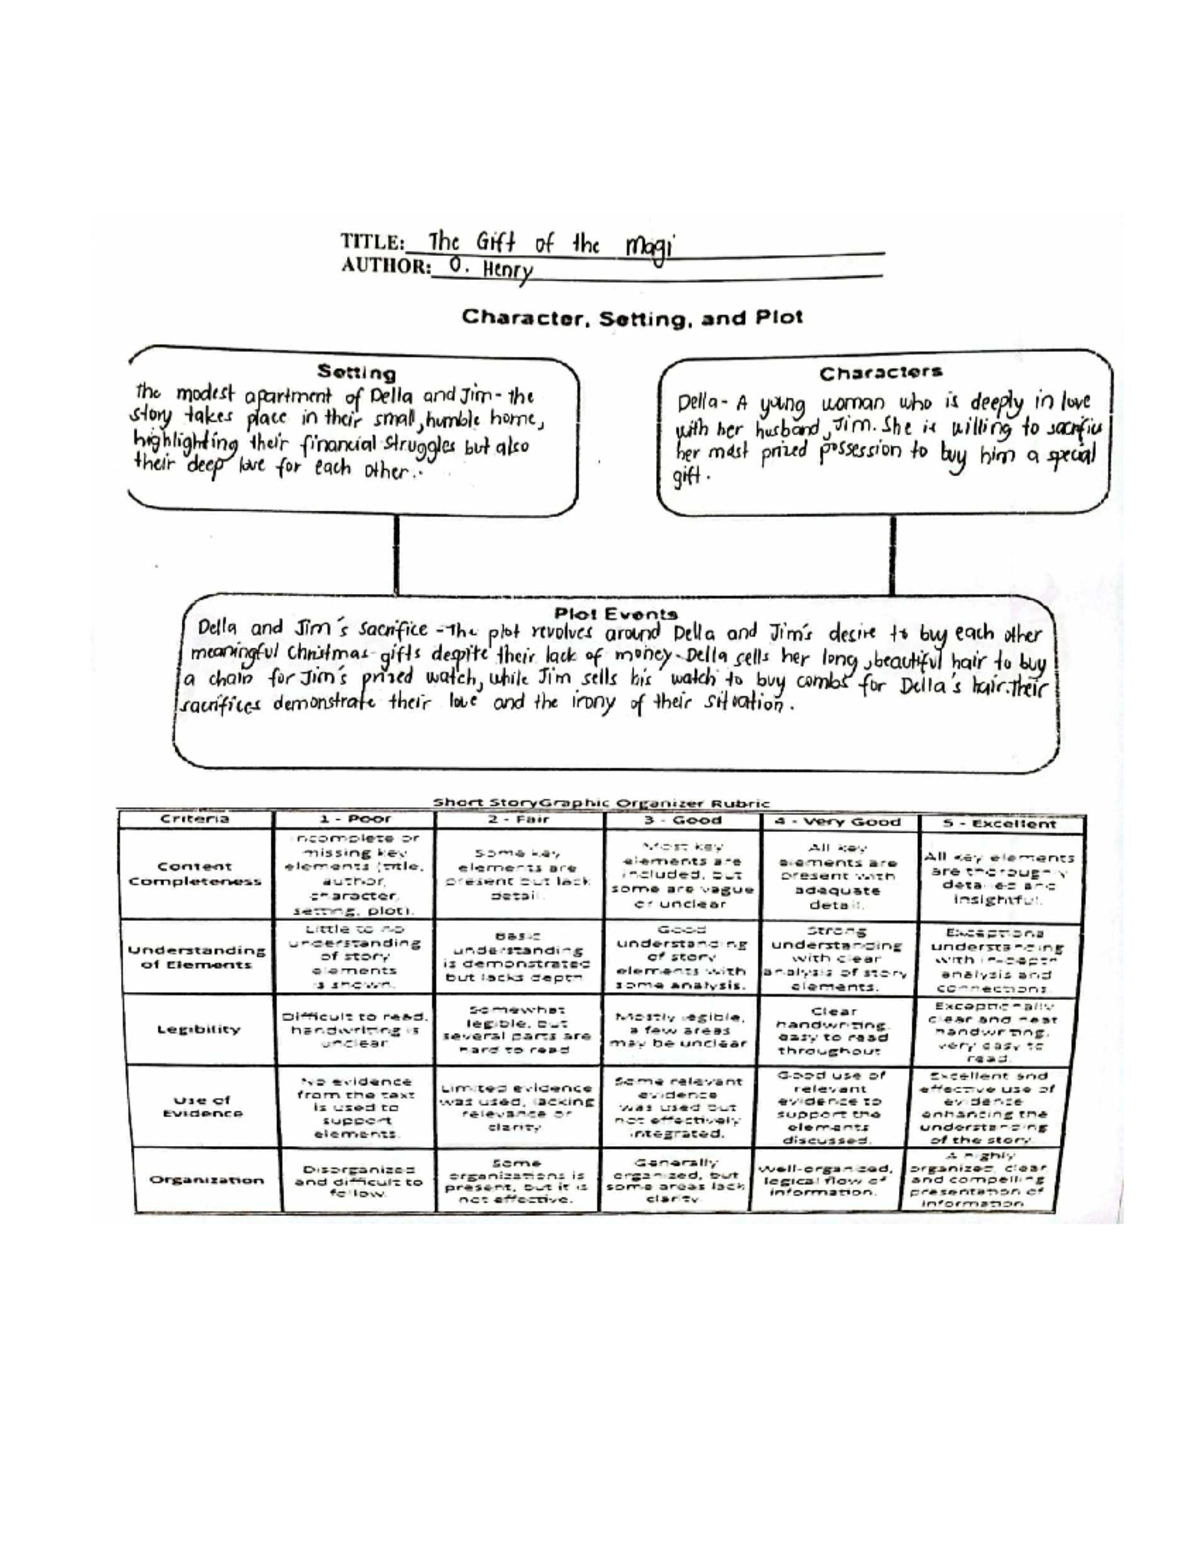 TITLE: The Gift of the Magi
AUTHOR: O. Henry
Character, Setting, and Plot
Setting
The modest apartment of Della and Jim- the
story takes place in their small, humble home,
highlighting their financial struggles but also
their deep love for each other..
Characters
Della- A young woman who is deeply in love
with her husband, Jim. She is willing to sacrifice
her most prized possession to buy him a special
gift.
Plot Events
Della and Jim's Sacrifice - The plot revolves around Della and Jim's desire to buy each other
meaningful Christmas gifts despite their lack of money. Della sells her long, beautiful hair to buy
a chain for Jim's prized watch, while Jim sells his watch to buy combs for Della's hair. Their
sacrifices demonstrate their love and the irony of their situation.
Short StoryGraphic Organizer Rubric
Criteria
1 - Poor
2 - Fair
3 - Good
4 - Very Good
5 - Excellent
Content
Completeness
Incomplete or
missing key
elements (title,
author,
character,
setting, plot).
Some key
elements are
present but lack
detail.
Most key
elements are
included, but
some are vague
or unclear
All key
elements are
present with
adequate
detail.
All key elements
are thoroughly
detailed and
insightful.
Understanding
of Elements
Little to no
understanding
of story
elements
is shown.
Basic
understanding
is demonstrated
but lacks depth
Good
understanding
of story
elements with
some analysis.
Strong
understanding
with clear
analysis of story
elements.
Exceptional
understanding
with in-depth
analysis and
connections.
Legibility
Difficult to read,
handwriting is
unclear
Somewhat
legible, but
several parts are
hard to read
Mostly legible,
a few areas
may be unclear
Clear
handwriting,
easy to read
throughout
Exceptionally
clear and neat
handwriting,
very easy to
read.
Use of
Evidence
No evidence
from the text
is used to
support
elements.
Limited evidence
was used, lacking
relevance or
clarity
Some relevant
evidence
was used but
not effectively
integrated.
Good use of
relevant
evidence to
support the
elements
discussed.
Excellent and
effective use of
evidence
enhancing the
understanding
of the story
Organization
Disorganized
and difficult to
follow.
Some
organizations is
present, but it is
not effective.
Generally
organized, but
some areas lack
clarity.
Well-organized,
logical flow of
information.
A highly
organized, clear
and compelling
presentation of
information